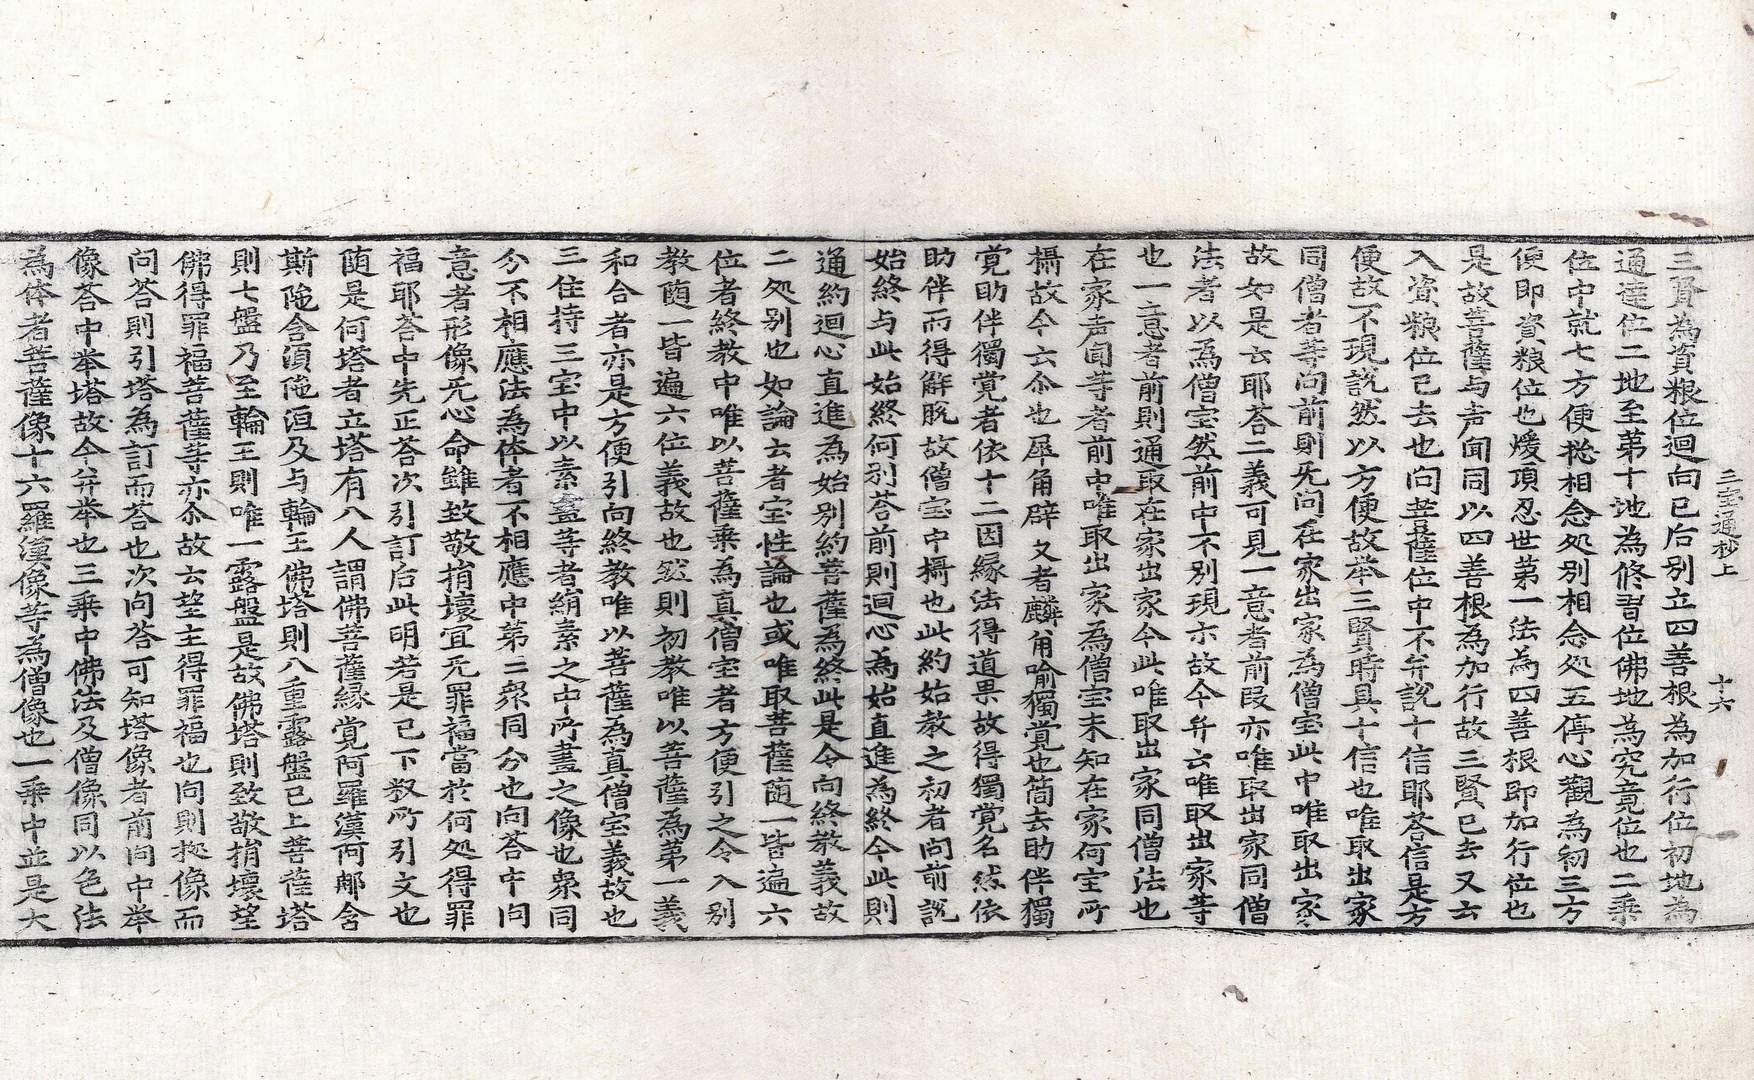 三宝通抄上　十六
三賢為資粮位迴向已后别立四善根為加行位初地為
通達位二地至第十地為修習位佛地為究竟位也二乗
位中就七方便捴相念処别相念処五停心觀為初三方
便即資粮位也煖頂忍世第一法為四善根即加行位也
是故菩薩与声闻同以四善根為加行故三賢已去又云
入資粮位已去也问菩薩位中不弁說十信耶荅信是方
便故不現說然以方便故举三賢時具十信也唯取出家
同僧者等问前則无问在家出家為僧宝此中唯取出家
故如是云耶荅二義可見一意者前段亦唯取出家同僧
法者以為僧宝然前中不别現示故今弁云唯取出家等
也一意者前則通取在家出家今此唯取出家同僧法也
在家声闻等者前中唯取出家為僧宝未知在家何宝所
攝故今云尒也犀角辟支者麟角喻獨覚也筒去助伴獨
覚助伴獨覚者依十二因縁法得道果故得獨覚名然依
助伴而得解脫故僧宝中攝也此約始教之初者问前說
始終与此始終何别荅前則迴心為始直進為終今此則
通約迴心直進為始别約菩薩為終此是令向終教義故
二処别也如論云者宝性論也或唯取菩薩随一皆遍六
位者終教中唯以菩薩乗為真僧宝者方便引之令入别
教随一皆遍六位義故也然則初教唯以菩薩為第一義
和合者亦是方便引向終教唯以菩薩為真僧宝義故也
三住持三宝中以素畫等者絹素之中所畫之像也衆同
分不相應法為体者不相應中第二衆同分也问荅中问
意者形像无心命雖致敬捎壞宜无罪福當於何処得罪
福耶荅中先正荅次引訂后此明若是已下叙所引文也
随是何塔者立塔有八人謂佛菩薩縁覚阿羅漢阿那含
斯陁含湏陁洹及与輪王佛塔則八重露盤已上菩薩塔
則七盤乃至輪王則唯一露盤是故佛塔則致敬捎壞望
佛得罪福菩薩等亦尒故云望主得罪福也问則捴像而
问荅則引塔為訂而荅也次问荅可知塔像者前问中举
像荅中举塔故今弁举也三乗中佛法及僧像同以色法
為体者菩薩像十六羅漢像等為僧像也一乗中並是大